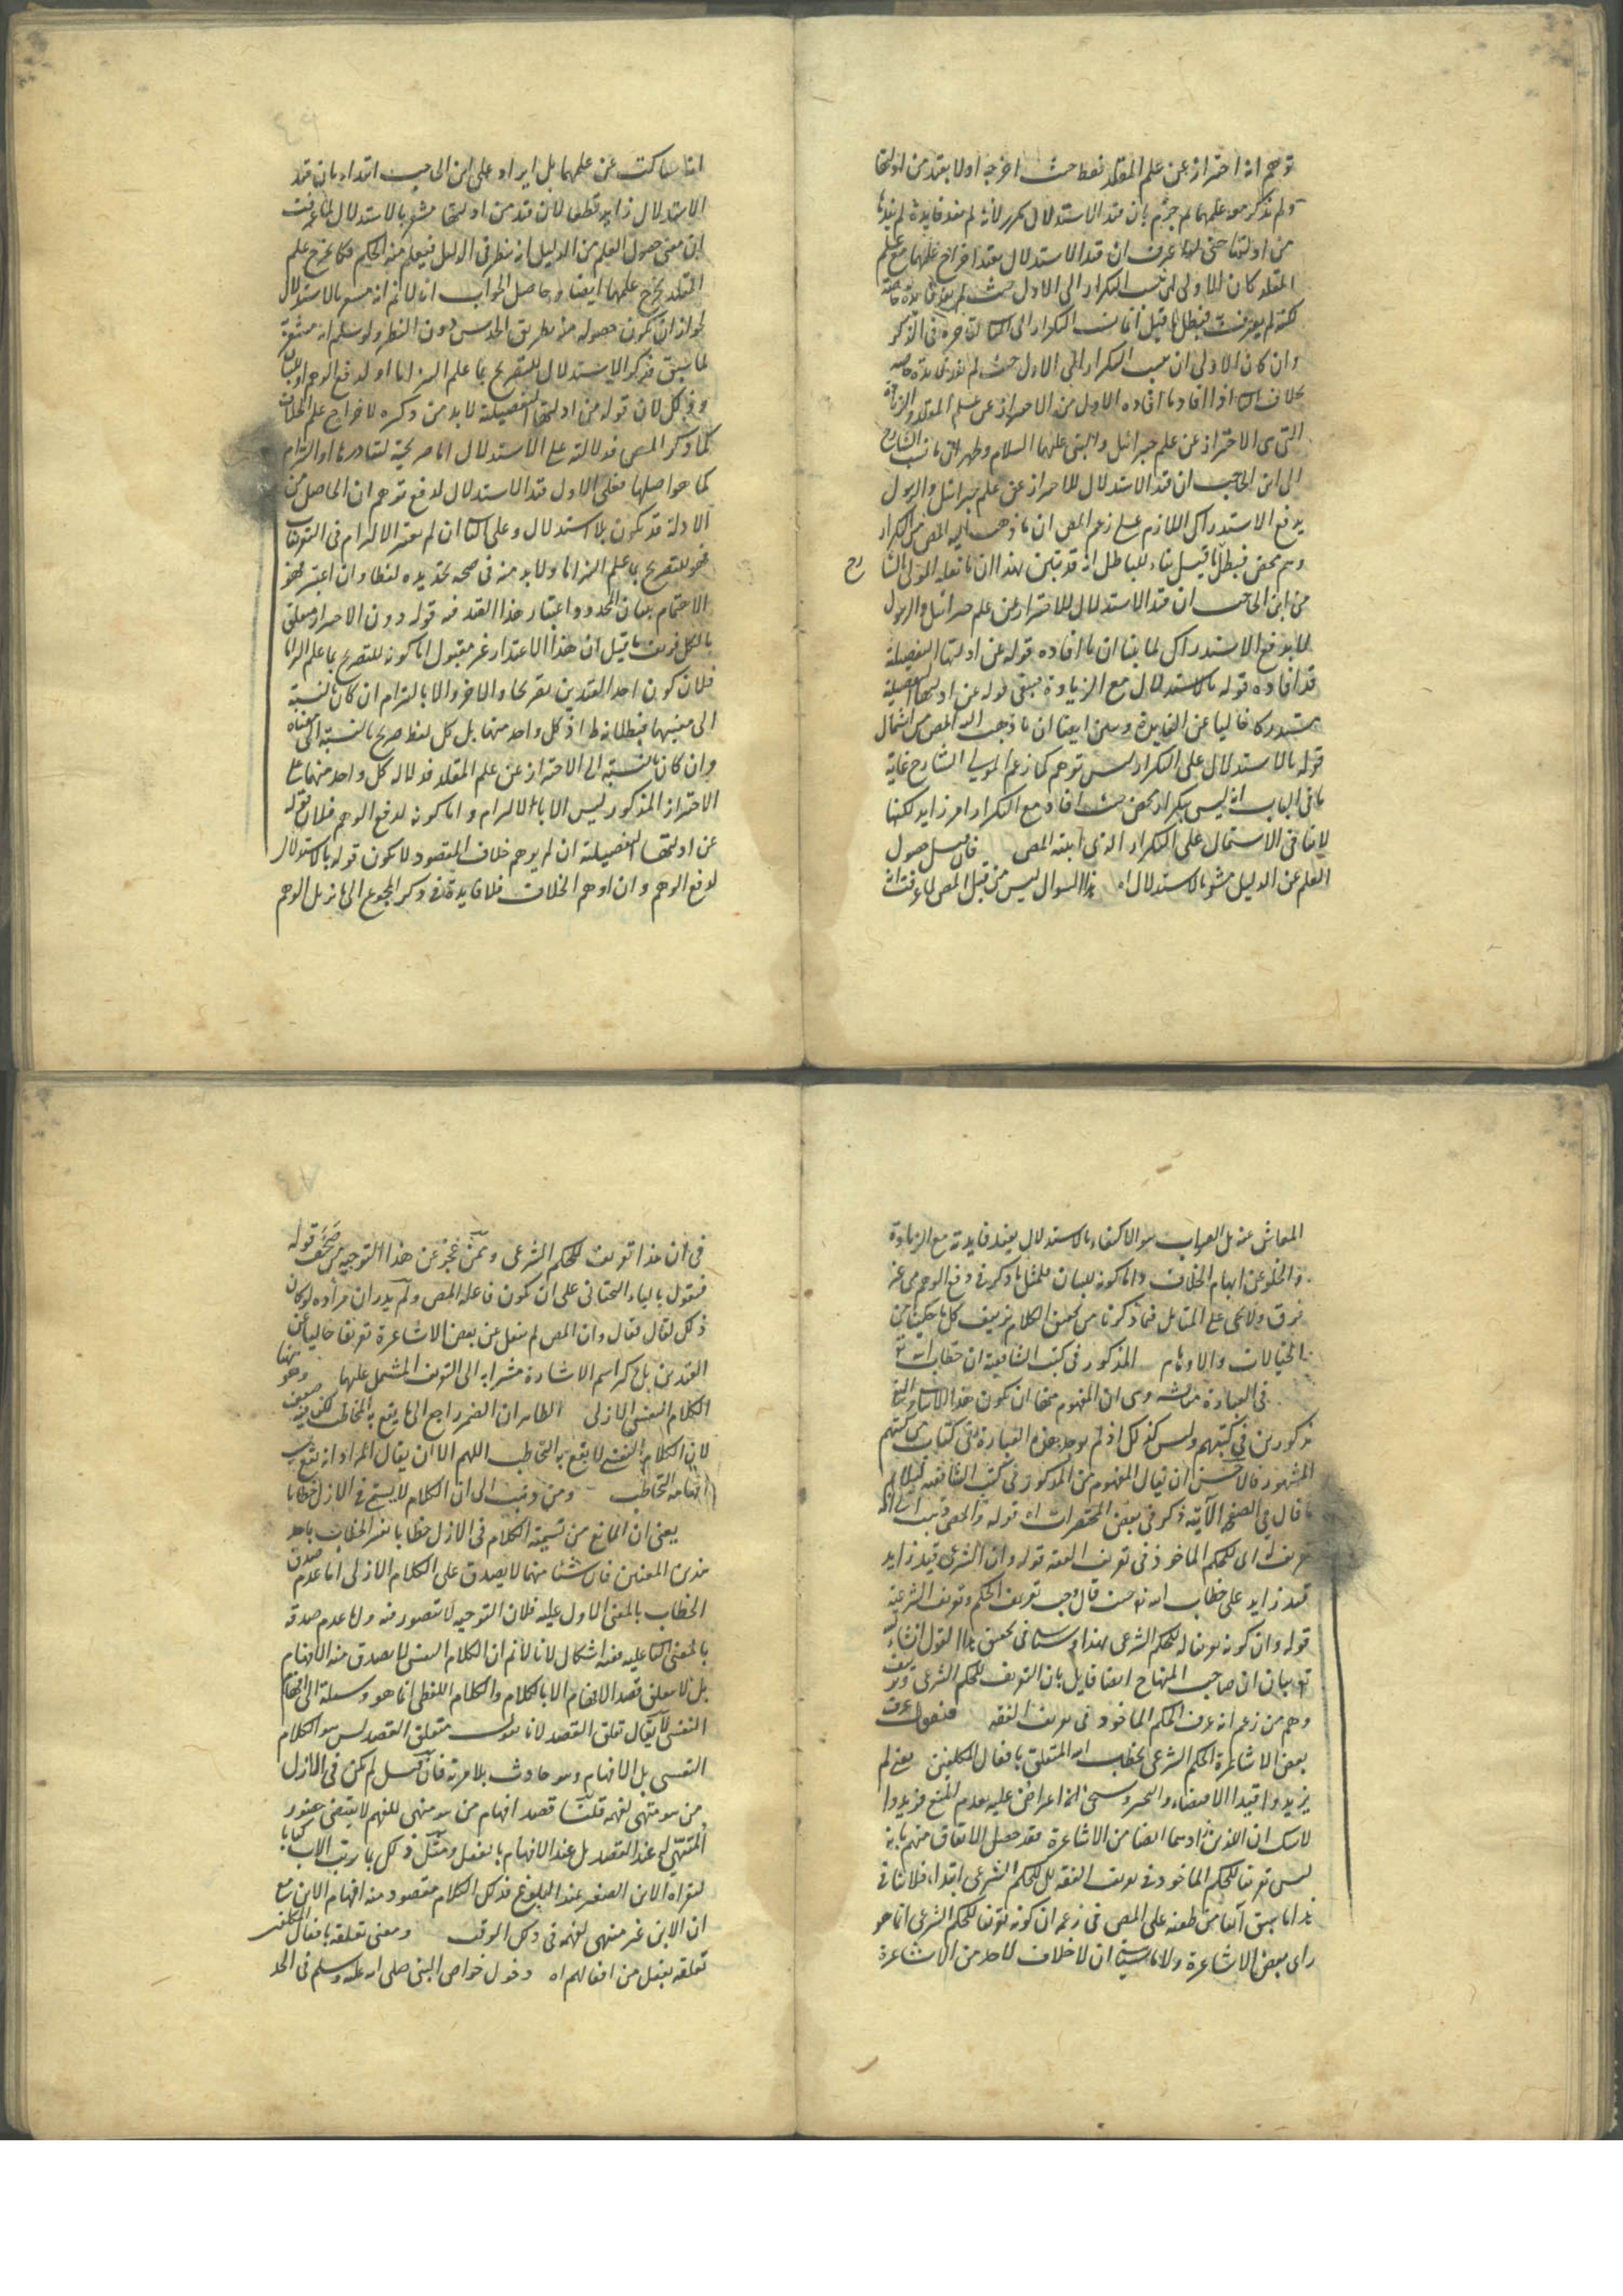 توهم انه احتراز عن علم المقلد فقط حيث اخرجه اولا بقيد من ادلتها
ولم يذكر معه علمهما لم جزم بان قيد الاستدلال مكرر لانه لم يفد فايدة لم يفدها
من ادلتها حتى لو عرف ان قيد الاستدلال يفيد اخراج علمهما مع علم
المقلد كان الاولى ان ينسب التكرار الى الاول حيث لم يفد فايدة خاصة
لكنه لم يعرف فبطل ما قيل انما نسب التكرار الى الثانى لتاخره فى الذكر
وان كان الاولى ان ينسب التكرار الى الاول حيث لم يفد فايدة خاصة
بخلاف الثانى اذا افاد ما افاده الاول من الاحتراز عن علم المقلد والزيادة
التى هى الاحتراز عن علم جبرائيل والنبى عليهما السلام وظهر ان ما نسب الشارح
الى ابن الحاجب ان قيد الاستدلال للاحتراز عن علم جبرائيل والرسول
يدفع الاستدراك اللازم على زعم المص ان ما ذهب اليه المص من التكرار
وهم محض فبطل ما قيل بناء للباطل انه قد تبين بهذا ان ما نقله المولى الشارح
من ابن الحاجب ان قيد الاستدلال للاحتراز عن علم جبرائيل والرسول
لا يدفع الاستدراك لما بينا ان ما افاده قوله عن ادلتها التفصيلية
قد افاده قوله بالاستدلال مع الزيادة فبقى قوله عن ادلتها التفصيلية
مستدركا خاليا عن الفايدة وتبين ايضا ان ما ذهب اليه المص من اشتمال
قوله بالاستدلال على التكرار ليس توهم كما زعم المولى الشارح غاية
ما فى الباب انه ليس بتكرار محض حيث افاد مع التكرار امر زايد لكنها
لا ينافى الاشتمال على التكرار الذى اثبته المص فان قيل حصول
العلم عن الدليل مشعر بالاستدلال اه هذا السوال ليس من قبل المص لما عرفت انه
انما ساكت عن علمهما بل ايراد على ابن الحاجب ابتداء بان قيد
الاستدلال زايد قطعا لان قيد من ادلتها مشعر بالاستدلال لما عرفت
ان معنى حصول العلم من الدليل انه ينظر فى الدليل فيعلم منه الحكم فكما يخرج علم
المقلد يخرج علمهما ايضا وحاصل الجواب انا لا نم انه مشعر بالاستدلال
لجواز ان يكون حصوله منه بطريق الحدس دون النظر ولو سلم انه مشعر
لما سبق فذكر الاستدلال للتصريح بما علم التزاما او لدفع الوهم او للبيان
وذلك لان قوله من ادلتها التفصيلية لا بد من ذكره لاخراج علم الخلاف
كما ذكر المص فدلالته على الاستدلال اما صريحية لتبادرها او التزام
كما هو اصلها فعلى الاول قيد الاستدلال لدفع توهم ان الحاصل من
الادلة قد يكون بلا استدلال وعلى الثانى ان لم يعتبر الالتزام فى التعريفات
فهو للتصريح بما علم التزاما ولا بد منه فى صحة تحديده لفظا وان اعتبر فهو
الاهتمام ببيان المحدود واعتبار هذا القيد فيه قوله دون الاحتراز متعلق
بالكل فريف ما قيل ان هذا الاعتذار غير مقبول اما كونه للتصريح بما علم التزاما
فلان كون احد القيدين تصريحا والاخر والا بالتزام ان كان بالنسبة
الى معنييهما فبطلانه ظ اذ كل واحد منهما بل كل لفظ صريح بالنسبة الى معناه
وان كان بالنسبة الى الاحتراز عن علم المقلد فدلالة كل واحد منهما على
الاحتراز المذكور ليس الا بالالتزام واما كونه لدفع الوهم فلان قوله
عن ادلتها التفصيلية ان لم يوهم خلاف المقصود لا يكون قوله بالاستدلال
لدفع الوهم وان اوهم الخلاف فلا فايدة فى ذكر المجموع الى ما يزيل الوهم
المعاش عنه بل الصواب هو الاكتفاء بالاستدلال يفيد فايدته مع الزيادة
والخلو عن ايهام الخلاف واما كونه للبيان فلمثل ما ذكر فى دفع الوهم من غير
فرق ولا يخفى على المتامل فيما ذكرنا من تحقيق الكلام تزييف كل ما حكينا من
الخيالات والاوهام المذكور فى كتب الشافعية ان خطاب الله تع
فى العبارة مناقشة وهى ان المفهوم منها ان يكون هذا الاساس والتابع
مذكورين فى كتبهم وليس كذلك اذ لم يوجد هذه العبارة فى كتاب من كتبهم
المشهور فالاحسن ان يقال المفهوم من المذكور فى كتب الشافعية ليلايم
ما قال فى الصفحة الآتية ذكر فى بعض المختصرات اه قوله والمص ذهب الى انه
تعريف له اى للحكم الماخوذ فى تعريف الفقه قوله وان الشرعى قيد زايد
قيد زايد على خطاب الله تع حيث قال وجب تعريف الحكم وتعريف الشرعية
قوله وان كونه تعريفا للحكم الشرعى بهذا وسياتى تحقيق هذا القول انشاء الله
تع ببيان ان صاحب المنهاج ايضا قايل بان التعريف للحكم الشرعى وتزييف
وهم من زعم انه عرف الحكم الماخوذ فى تعريف الفقه فنقول عرف
بعض الاشاعرة الحكم الشرعى بخطاب الله المتعلق بافعال المكلفين يعنى لم
يزيدوا قيد الاقتضاء والتخيير وسيجئ اعتراض عليه بعدم المنع فزيدوا
لا شك ان الذين زادوهما ايضا من الاشاعرة فقد حصل الاتفاق منهم بانه
ليس تعريفا للحكم الماخوذ فى تعريف الفقه بل للحكم الشرعى ابتداء فلا ينافى
هذا ما سبق آنفا من طعنه على المص فى زعمه ان كونه تعريفا للحكم الشرعى انما هو
راى بعض الاشاعرة ولا ما سيئتى ان لا خلاف لاحد من الاشاعرة
فى ان هذا تعريف للحكم الشرعى وممن عجز عن هذا التوجيه من صحف قوله
فنقول بالياء التحتانى على ان يكون فاعله المص ولم يدر ان مراده لو كان
ذلك لقال فقال وان المص لم ينقل عن بعض الاشاعرة تعريفا خاليا عن
القيدين بل ذكر اسم الاشارة مشيرا به الى التعريف المشتمل عليهما وهو
الكلام النفسى الازلى الظاهر ان الضمير راجع الى ما يقع به التخاطب لكنه ضعيف
لان الكلام النفسى لا يقع به التخاطب اللهم الا ان يقال المراد انه يقع بسبب
افهامه التخاطب ومن ذهب الى ان الكلام لا يسمى فى الازل خطابا
يعنى ان المانع من تسمية الكلام فى الازل خطابا يفسر الخطاب باحد
هذين المعنيين فان شيئا منهما لا يصدق على الكلام الازلى اما عدم صدق
الخطاب بالمعنى الاول عليه فلان التوجيه لا يتصور منه واما عدم صدقه
بالمعنى الثانى عليه ففيه اشكال لانا لا نم ان الكلام النفسى لا يصدق منه الافهام
بل لا يتعلق قصد الافهام الا بالكلام والكلام اللفظى انما هو وسيلة الى افهام
النفسى لا يقال تعلق القصد لانا نقول متعلق القصد ليس هو الكلام
النفسى بل الافهام وهو حادث بلا مرية فان قيل لم يكن فى الازل
من هو متهئ لفهمه قلنا قصد افهام من هو متهئ للفهم لا يقتضى حضور
المتهئ له عند القصد بل عند الافهام بالفعل ومثل ذلك بما يرتب الاب كتابا
ليقراه الابن الصغير عند البلوغ فذلك الكلام مقصود منه افهام الابن مع
ان الابن غير متهئ لفهمه فى ذلك الوقت ومعنى تعلقه بافعال المكلفين
تعلقه بفعل من افعالهم اه دخول خواص النبى صلى الله عليه وسلم فى الحد